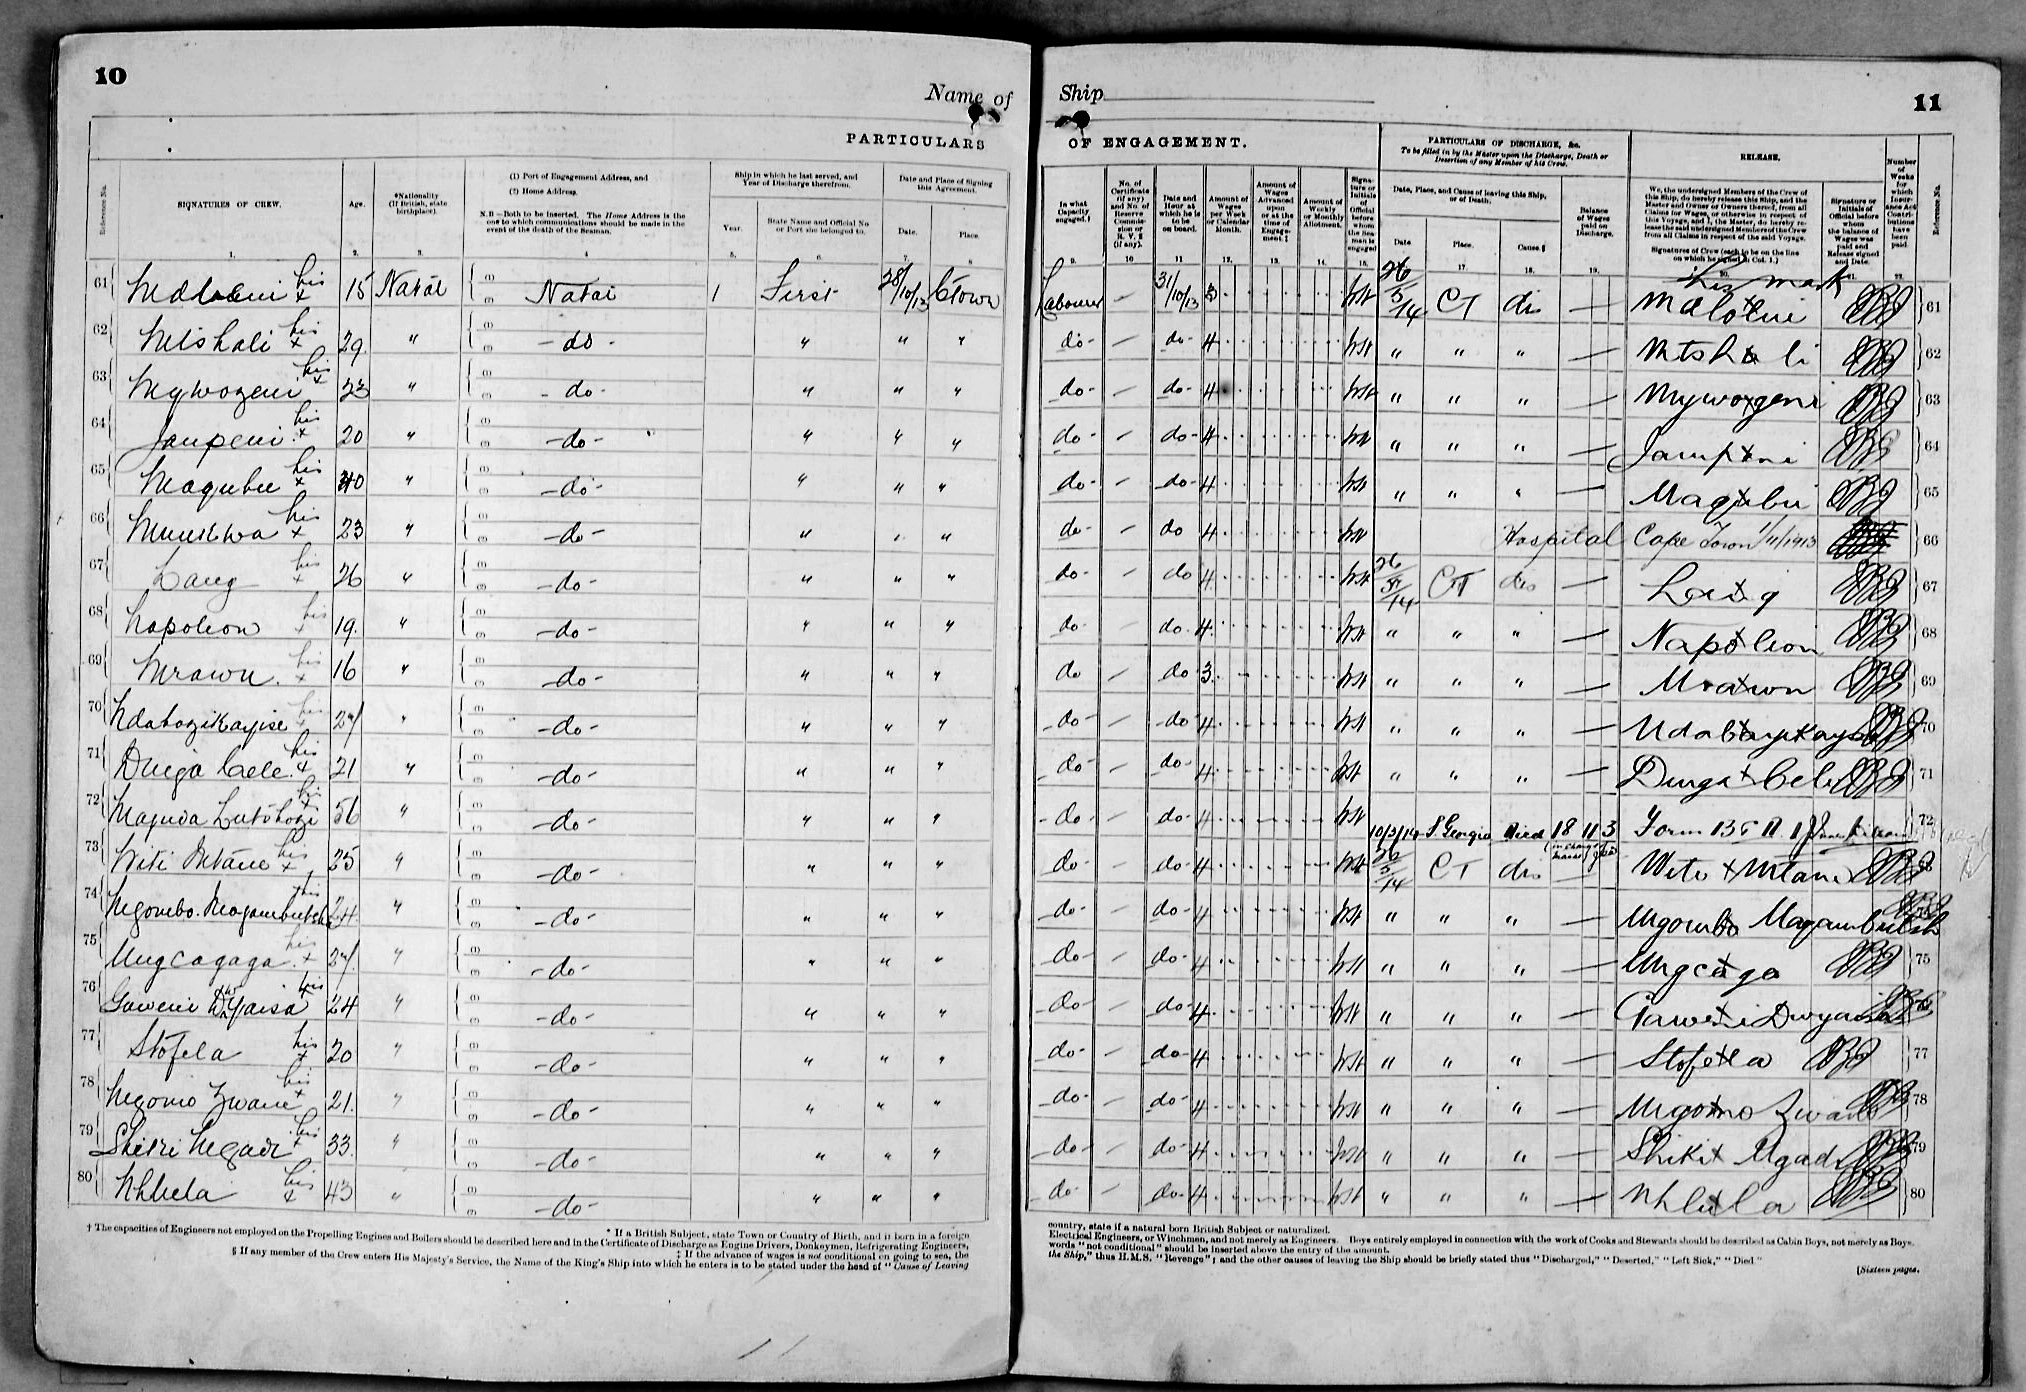 10
Name of
PARTICULARS
Reference No.
SIGNATURES OF CREW.
Age.
*Nationality (If British, state birthplace).
(1) Port of Engagement Address, and
(2) Home Address.
N.B.—Both to be inserted. The Home Address is the one to which communications should be made in the event of the death of the Seaman.
Ship in which he last served, and Year of Discharge therefrom.
Year.
State Name and Official No or Port she belonged to.
Date and Place of Signing this Agreement.
Date.
Place.
1. 2. 3. 4 5. 6. 7. 8
61 his x 15 Natal (1) (2) Natal 1 First 28/10/13 CTown
62 Mtshali his x 29 " - do - " " "
63 Mywozeni his x 23 " - do - " " "
64 Jampeni his x 20 " - do - " " "
65 Maqubu his x 40 " - do - " " "
66 his x 23 " - do - " " "
67 Lang his x 26 " - do - " " "
68 Napoleon his x 19. " - do - " " "
69 Mrawu. his x 16 " - do - " " "
70 Ndabazikayise his x " - do - " " "
71 Dunga Cele his x 21 " - do - " " "
72 his x 56 " - do - " " "
73 Witi Mtane his x 25 " - do - " " "
74 his 24 " - do - " " "
75 Mngcagaga his x " - do - " " "
76 Gaweni Dwyaisa his x 24 " - do - " " "
77 Stofela his x 20 " - do - " " "
78 Mgomo Zwane his x 21. " - do - " " "
79 Shiki Mgadi his x 33. " - do - " " "
80 Nhlela his x 43 " - do - " " "
† The capacities of Engineers not employed on the Propelling Engines and Boilers should be described here and in the Certificate of Discharge as Engine Drivers, Donkeymen, Refrigerating Engineers,
* If a British Subject, state Town or Country of Birth, and if born in a foreign
‡ If the advance of wages is not conditional on going to sea, the
§ If any member of the Crew enters His Majesty's Service, the Name of the King's Ship into which he enters is to be stated under the head of "Cause of Leaving
Ship
11
OF ENGAGEMENT.
PARTICULARS OF DISCHARGE, &c.
To be filled in by the Master upon the Discharge, Death or Desertion of any Member of his Crew.
RELEASE.
In what Capacity engaged.†
No. of Certificate (if any) and No. of Reserve Commission or R. V. 2 (if any).
Date and Hour at which he is to be on board.
Amount of Wages per Week or Calendar Month.
Amount of Wages Advanced upon or at the time of Engagement.‡
Amount of Weekly or Monthly Allotment.
Signature or Initials of Official before whom the Seaman is engaged
Date, Place, and Cause of leaving this Ship, or of Death.
Date
Place.
Cause.§
Balance of Wages paid on Discharge.
We, the undersigned Members of the Crew of this Ship, do hereby release this Ship, and the Master and Owner or Owners thereof, from all Claims for Wages, or otherwise in respect of this Voyage, and I, the Master, do hereby release the said undersigned Members of the Crew from all Claims in respect of the said Voyage.
Signatures of Crew (each to be on the line on which he signed in Col. 1.)
Signature or Initials of Official before whom the balance of Wages was paid and Release signed and Date.
Number of Weeks for which Insurance Act Contributions have been paid.
Reference No.
9. 10 11 12. 13. 14. 15. 17. 18. 19. 20. 21. 22.
his mark
Labourer - 31/10/13 3 26/5/14 CT dis - 61
do - do 4 " " " - Mtsh x li 62
do - do 4 " " " - Mywo x zeni 63
do - do 4 " " " - Jamp x ni 64
do - do 4 " " " - Maq x bu 65
do - do 4 Hospital Cape Town 1/11/1913 66
do - do 4 26/5/14 CT dis - La x g 67
do - do 4 " " " - Napo x leon 68
do - do 3 " " " - Mra x wn 69
do - do 4 " " " - 70
do - do 4 " " " - Dunga x Cele 71
do - do 4 10/3/14 S Georgia Died 18 11 3 Form 72
do - do 4 26/5/14 CT dis - Wite x Mtane
do - do 4 " " " - Mgomb x
do - do 4 " " " - Mngca x ga 75
do - do 4 " " " - Gawe x i Dwyaisa 76
do - do 4 " " " - Stofe x la 77
do - do 4 " " " - Mgo x mo Zwane 78
do - do 4 " " " - Shiki x Mgadi 79
do - do 4 " " " - Nhle x la 80
country, state if a natural born British Subject or naturalized.
Electrical Engineers, or Winchmen, and not merely as Engineers. Boys entirely employed in connection with the work of Cooks and Stewards should be described as Cabin Boys, not merely as Boys.
words "not conditional" should be inserted above the entry of the amount.
the Ship," thus H.M.S. "Revenge"; and the other causes of leaving the Ship should be briefly stated thus "Discharged," "Deserted," "Left Sick," "Died"
[Sixteen pages.